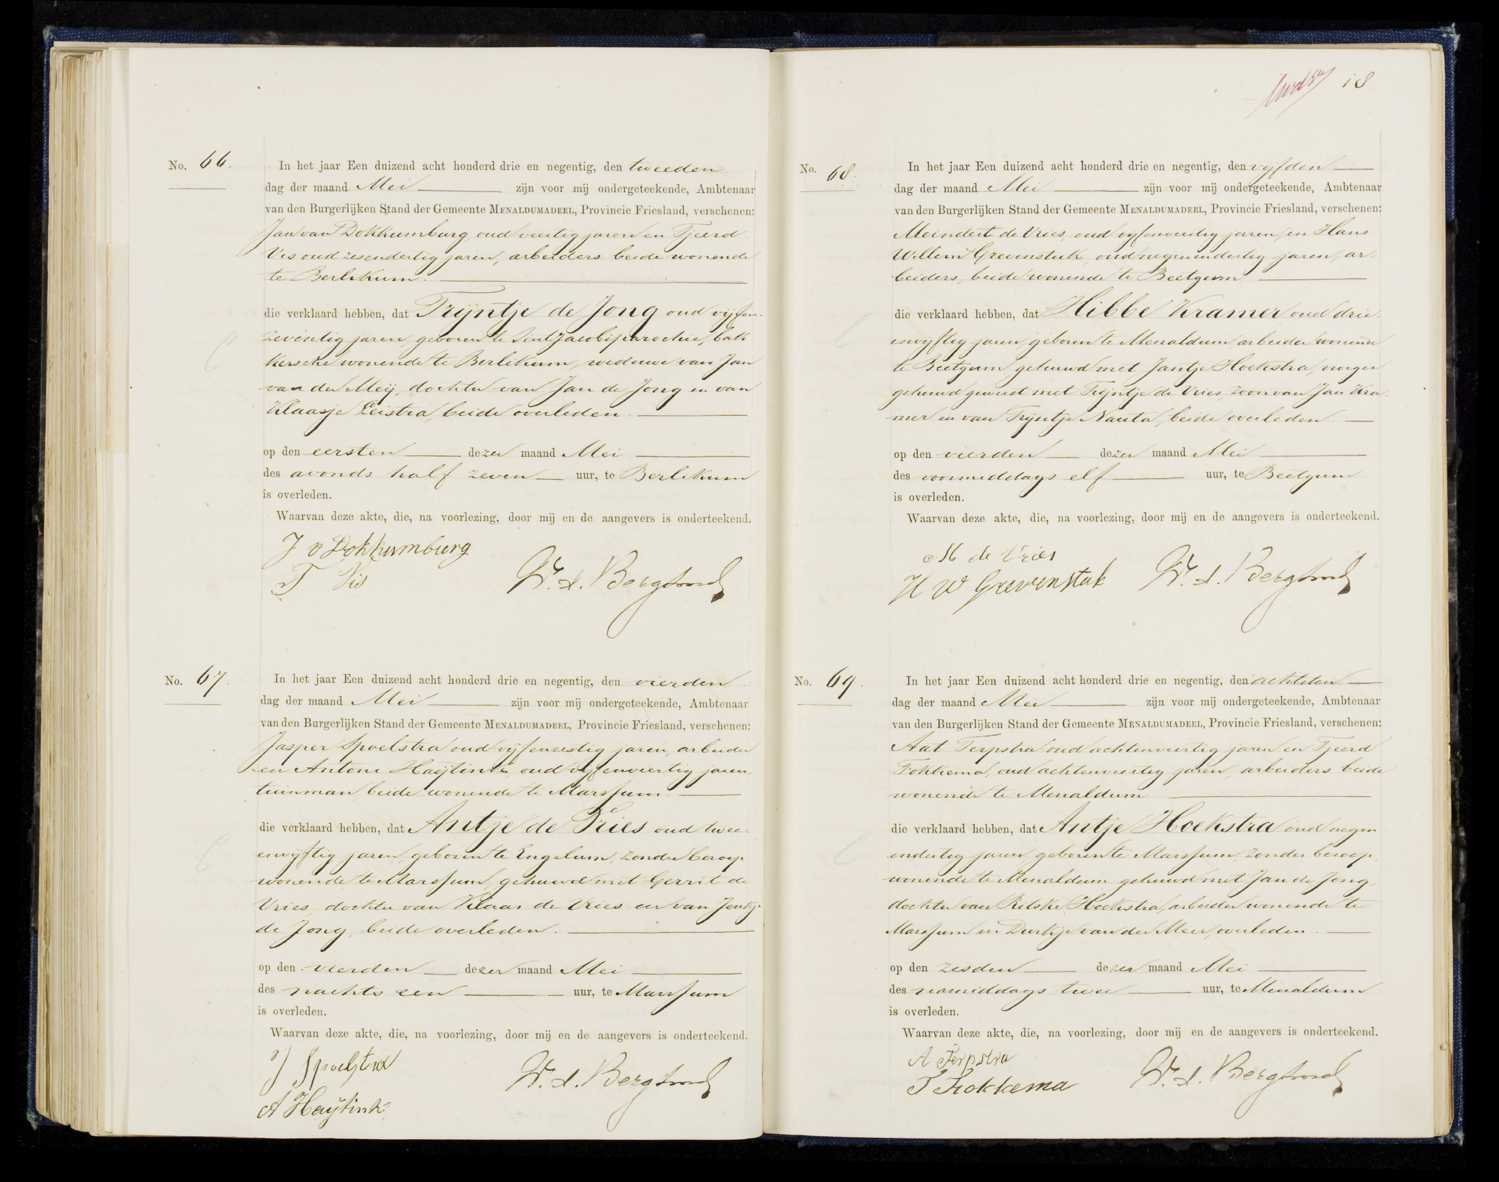 No. 66.
In het jaar Een duizend acht honderd drie en negentig, den tweeden
dag der maand Mei zijn voor mij ondergeteekende, Ambtenaar
van den Burgerlijken Stand der Gemeente MENALDUMADEEL, Provincie Friesland, verschenen:
Jan van Dokkumburg, oud veertig jaren en Tjeerd
Vis oud zesendertig jaren, arbeiders beide wonende
te Berlikum.
die verklaard hebben, dat Trijntje de Jong oud vijfen-
zeventig jaren, geboren te Sint Jacobiparochie, bak-
kersche wonende te Berlikum, weduwe van Jan
van der Meij, dochter van Jan de Jong en van
Klaasje Leistra, beide overleden.
op den eersten dezer maand Mei
des avonds half zeven uur, te Berlikum
is overleden.
Waarvan deze akte, die, na voorlezing, door mij en de aangevers is onderteekend.
J v Dokkumburg
T Vis
No. 67.
In het jaar Een duizend acht honderd drie en negentig, den vierden
dag der maand Mei zijn voor mij ondergeteekende, Ambtenaar
van den Burgerlijken Stand der Gemeente MENALDUMADEEL, Provincie Friesland, verschenen:
Jasper Spoelstra oud vijfenzestig jaren, arbeider
en Antoni Haÿtink oud vijfenveertig jaren
tuinman, beide wonende te Marssum.
die verklaard hebben, dat Antje de Vries oud twee-
envijftig jaren, geboren te Engelum, zonder beroep
wonende te Marssum, gehuwd met Gerrit de
Vries, dochter van Klaas de Vries en van Jentje
de Jong, beide overleden.
op den vierden dezer maand Mei
des nachts een uur, te Marssum
is overleden.
Waarvan deze akte, die, na voorlezing, door mij en de aangevers is onderteekend.
J Spoelstra
A Haÿtink
18
No. 68.
In het jaar Een duizend acht honderd drie en negentig, den vijfden
dag der maand Mei zijn voor mij ondergeteekende, Ambtenaar
van den Burgerlijken Stand der Gemeente MENALDUMADEEL, Provincie Friesland, verschenen:
Meindert de Vries, oud vijfenveertig jaren, en Hans
Willem Grevenstuk, oud negenendertig jaren, ar-
beiders, beide wonende te Beetgum
die verklaard hebben, dat Hibbe Kramer oud drie-
envijftig jaren geboren te Menaldum arbeider wonende
te Beetgum gehuwd met Jantje Hoekstra, vroeger
gehuwd geweest met Trijntje de Vries zoon van Jan Kra-
mer en van Trijntje Nauta, beide overleden.
op den vierden dezer maand Mei
des voormiddags elf uur, te Beetgum
is overleden.
Waarvan deze akte, die, na voorlezing, door mij en de aangevers is onderteekend.
M de Vries
H W Grevenstuk
No. 69.
In het jaar Een duizend acht honderd drie en negentig, den achtsten
dag der maand Mei zijn voor mij ondergeteekende, Ambtenaar
van den Burgerlijken Stand der Gemeente MENALDUMADEEL, Provincie Friesland, verschenen:
Aat Terpstra oud achtenveertig jaren en Tjeerd
Fokkema, oud achtenveertig jaren, arbeiders beide
wonende te Menaldum
die verklaard hebben, dat Antje Hoekstra oud negen-
endertig jaren, geboren te Marssum, zonder beroep
wonende te Menaldum gehuwd met Jan de Jong
dochter van Hoekstra, arbeider wonende te
Marssum en van der Meer, overleden.
op den zesden dezer maand Mei
des namiddags twee uur, te Menaldum
is overleden.
Waarvan deze akte, die, na voorlezing, door mij en de aangevers is onderteekend.
A Terpstra
T Fokkema